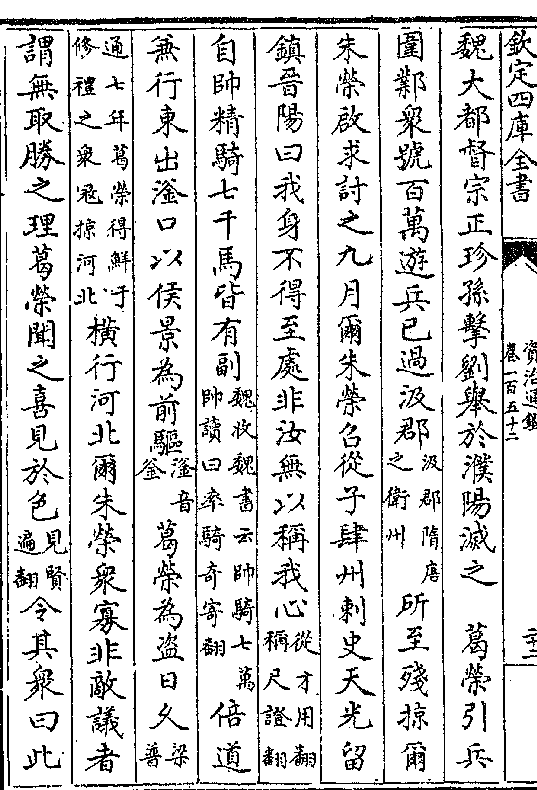 欽定四庫全書
資治通鑑
卷一百五十二
二十二
魏大都督宗正珍孫擊劉舉於濮陽滅之　葛榮引兵
圍鄴衆號百萬遊兵已過汲郡汲郡隋唐之衛州所至殘掠爾
朱榮啟求討之九月爾朱榮召從子肆州刺史天光留
鎮晉陽曰我身不得至處非汝無以稱我心從才用翻稱尺證翻
自帥精騎七千馬皆有副魏收魏書云帥騎七萬帥讀曰率騎奇寄翻倍道
兼行東出滏口以侯景為前驅滏音釜葛榮為盜日久梁普
通七年葛榮得鮮于修禮之衆寇掠河北橫行河北爾朱榮衆寡非敵議者
謂無取勝之理葛榮聞之喜見於色見賢遍翻令其衆曰此